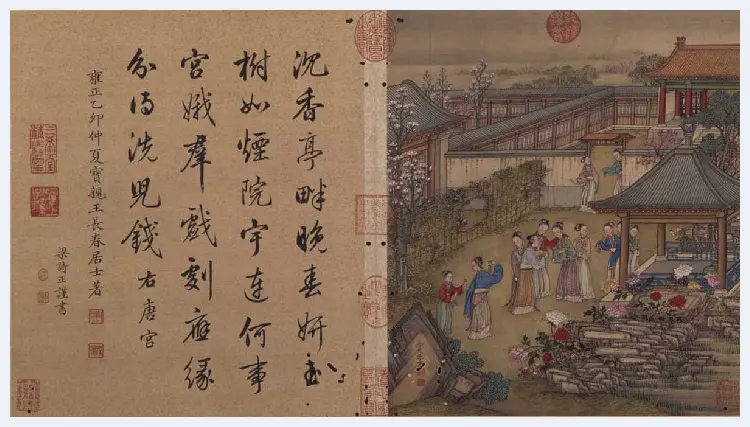 沉香亭畔晚春妍玉
樹如煙院宇連何事
宮娥羣戲劇應緣
分得洗兒錢右唐宮
雍正乙卯仲夏寶親王長春居士著
梁詩正謹書